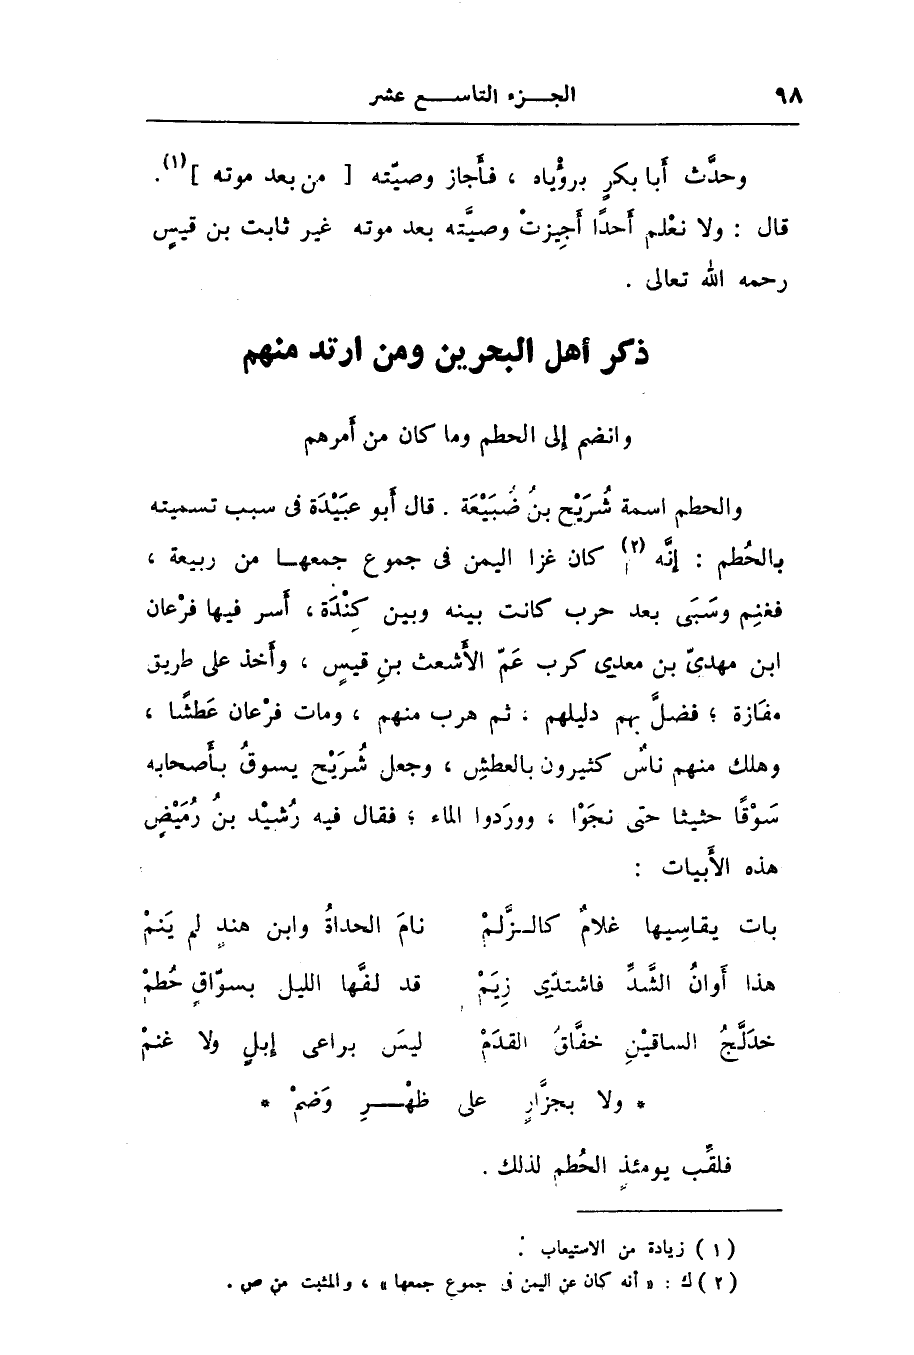 ٩٨ الجـــزء التاســـع عشر
وحدَّث أَبا بكرٍ برؤْياه ، فأَجاز وصيّته [ من بعد موته ] (١).
قال : ولا نعْلم أَحدًا أُجِيزتْ وصيَّته بعد موته غير ثابت بن قيسٍ
رحمه الله تعالى .
ذكر أهل البحرين ومن ارتد منهم
وانضم إلى الحطم وما كان من أَمرهم
والحطم اسمة شُرَيْح بنُ ضُبَيْعَة . قال أَبو عبَيْدَة فى سبب تسميته
بالحُطم : إنَّه (٢) كان غزا اليمن فى جموع جمعهــا من ربيعة ،
فغنِم وسَبَى بعد حرب كانت بينه وبين كِنْدَة ، أَسر فيها فرْعان
ابن مهدىّ بن معدى كرب عَمّ الأَشعث بنِ قيسٍ ، وأَخذ على طريق
مفَازة ؛ فضلَّ بهم دليلهم ، ثم هرب منهم ، ومات فرْعان عَطشًا ،
وهلك منهم ناسٌ كثيرون بالعطشِ ، وجعل شُرَيْح يسوقُ بأَصحابه
سَوْقًا حثيثا حتى نجَوْا ، ووردوا الماء ؛ فقال فيه رُشَيْد بنُ رُمَيْضٍ
هذه الأَبيات :
بات يقاسِيها غلامٌ كالــزَّلمْ نامَ الحداةُ وابن هندٍ لم يَنمْ
هذا أَوانُ الشَّدِّ فاشتدّى زِيَمْ قد لفَّها الليل بسوّاقٍ حُطمْ
خدَلَّجُ الساقيْنِ خفَّاقُ القدَمْ ليسَ براعى إبلٍ ولا غنمْ
* ولا بجزَّارٍ على ظهْــرِ وَضمْ *
فلقِّب يومئذٍ الحُطم لذلك .
(١) زيادة من الاستيعاب .
(٢) ك : « أنه كان عن اليمن فى جموع جمعها » ، والمثبت من ص .